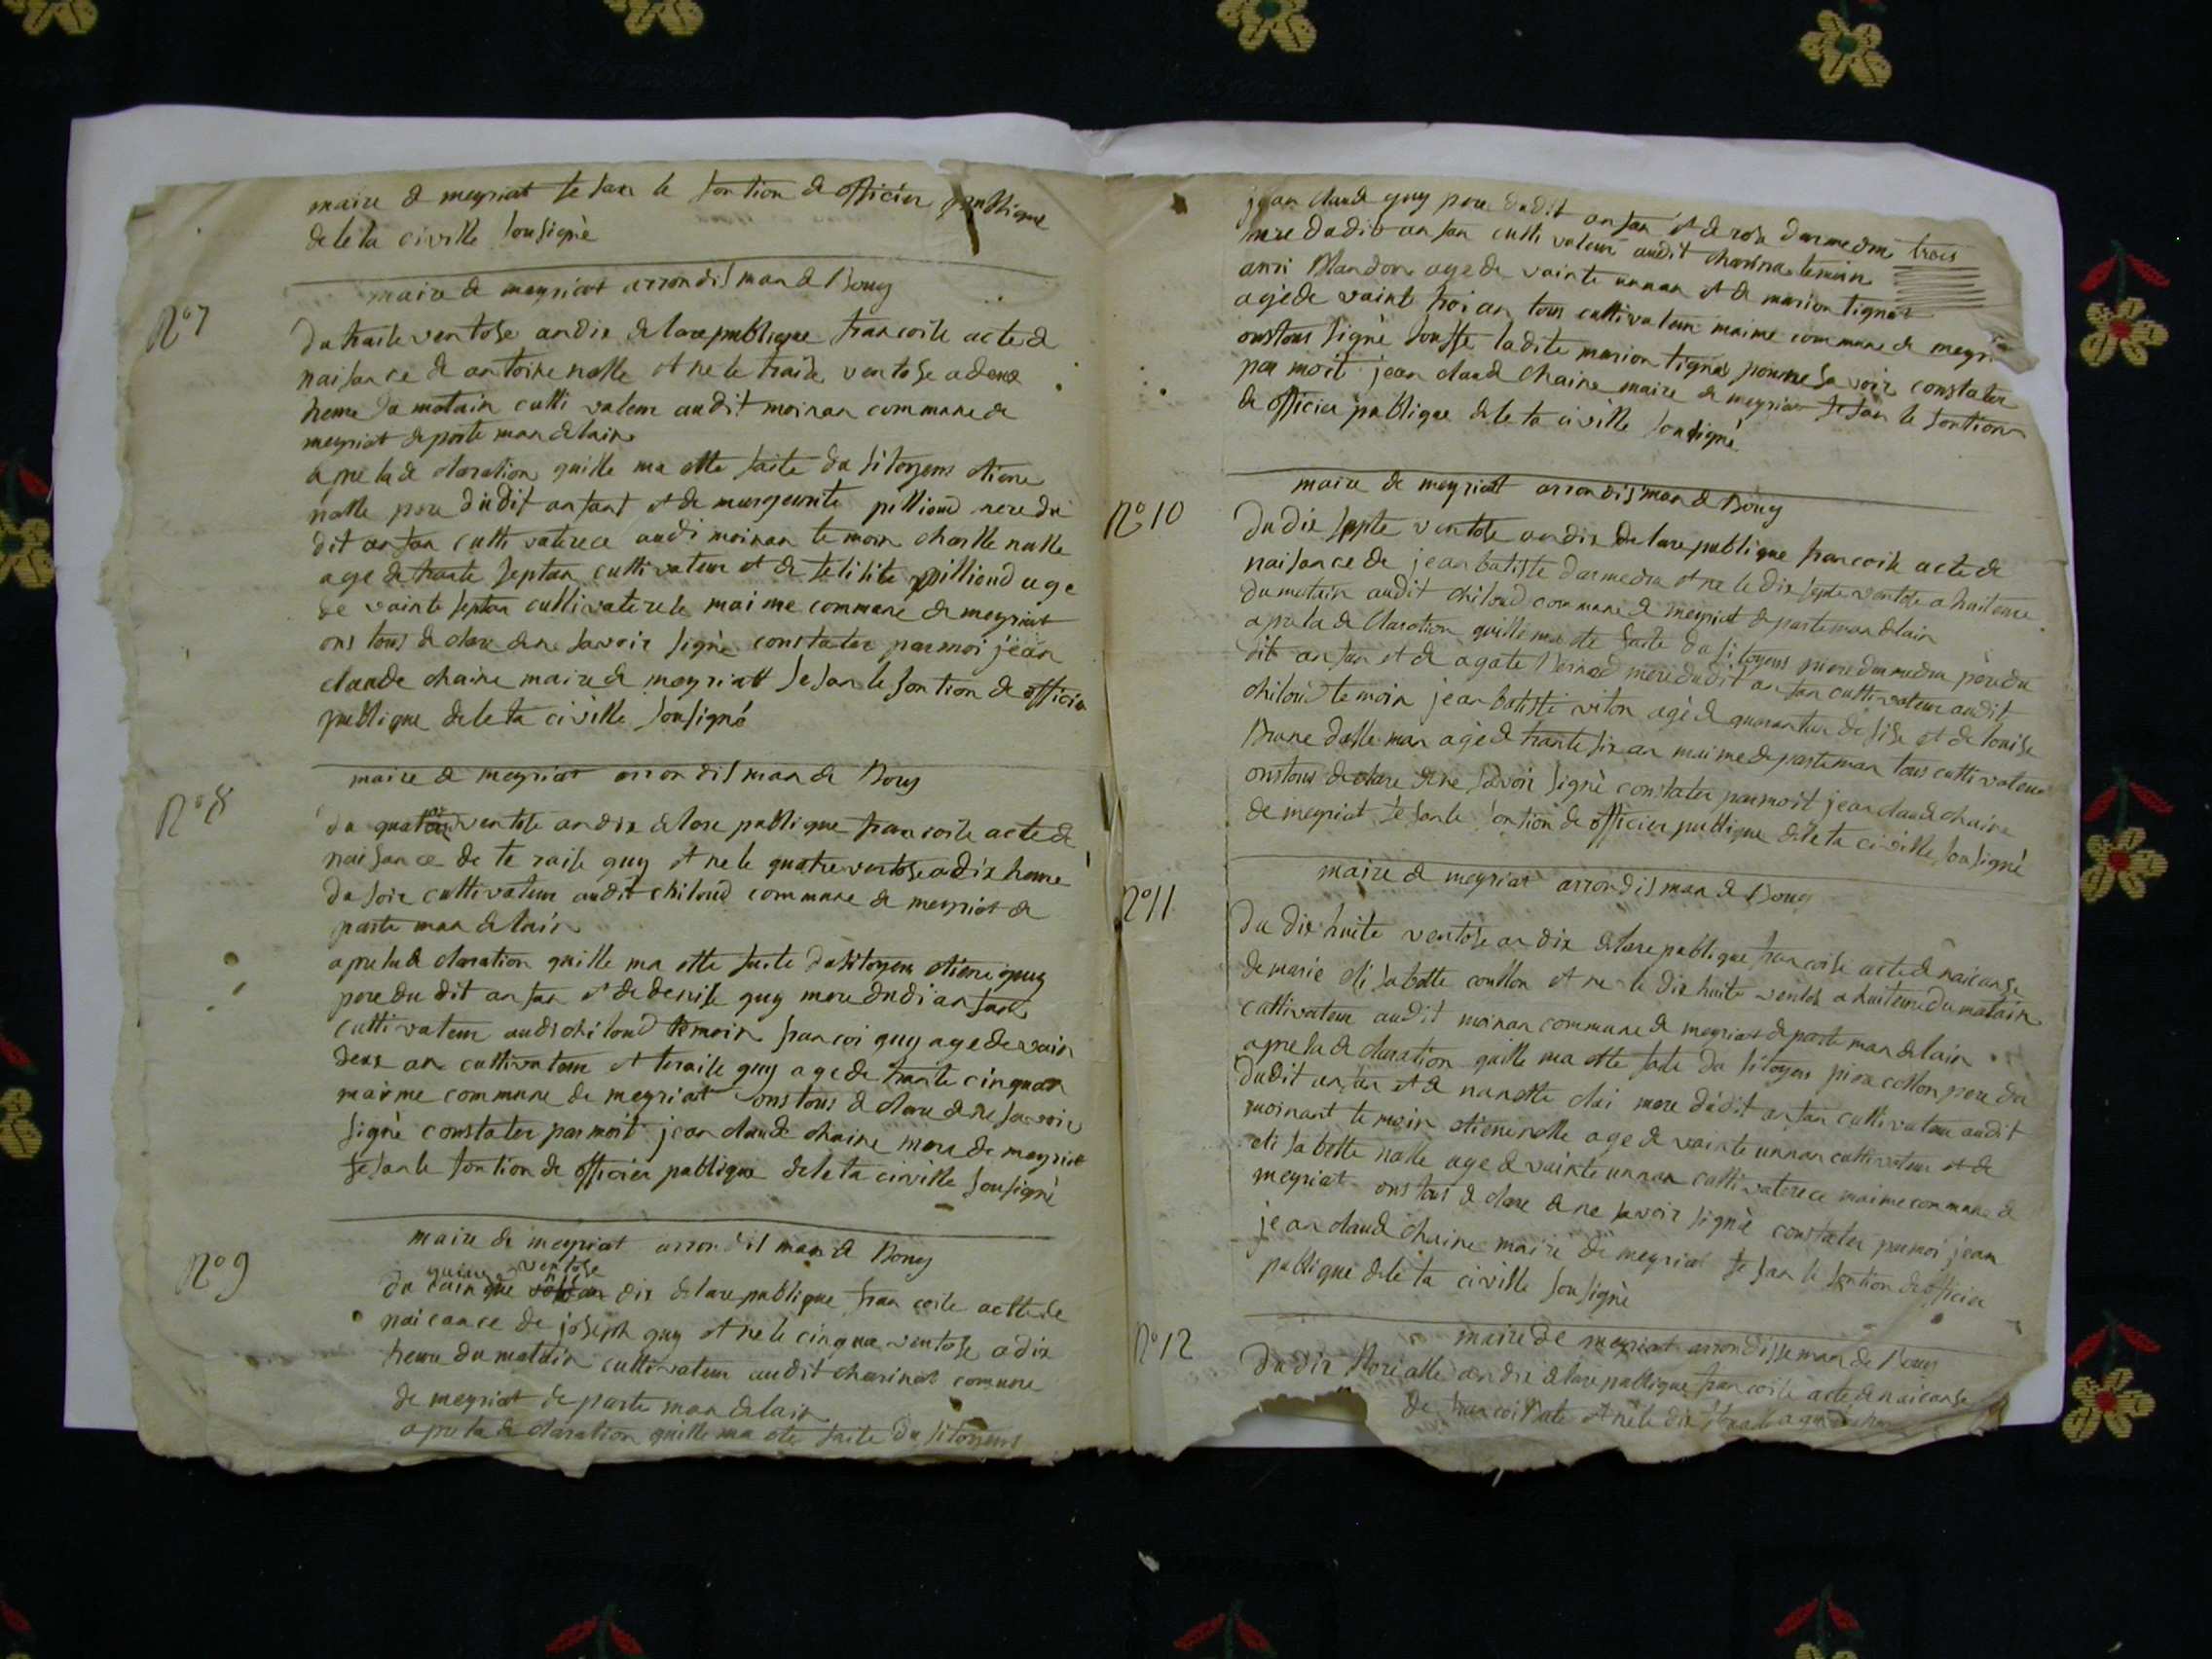 maire de meyriat fe san le fontion de officier publique
de leta civille sousigné
N° 7
maire de meyriat arrondisman de Bourg
du traite ventose an dix de la republique francoise acte de
naisance de antoine nalle et ne le traite ventose a deux
heure du matain culti vateur audit moinan commune de
meyriat departe man de lain
apre la de claration quille ma ette faite du sitoyens etiene
nalle pere dudit anfant et de margeurite pillioud mere du
dit anfan culti vaterece audi moinan te moin charlle nalle
age de trante septan cultivateur et de felisite pillioud age
de vainte septan cultivaterese maime commune de meyriat
ons tous de clare de ne savoir signé constater par moi jean
claude chaine maire de meyriatt fesan le fontion de officier
publique de leta civille sousigné
N° 8
maire de meyriat arrondisman de Bourg
du quatre ventose an dix de lare publique francoise acte de
naisance de te raise guy et ne le quatre ventose a dix heure
du soir cultivateur audit chiloud commune de meyriat de
parte man de lain
apre la de claration quille ma ette faite du sitoyens etiene guy
pere du dit an fan et de denise guy mere dudi anfant
culti vateur audi chiloud temoin francoi guy age de vain
deux an cultivateur et teraise guy age de trante cinquan
maime commune de meyriat ons tous de clare de ne savoir
signé constater par moit jean claude chaine mere de meyriat
fesan le fontion de officier publique de leta civille sousigné
N° 9
maire de meyriat arrondisman de Bourg
ventose
du cinque an dix de lare publique francoise acte de
naicance de joseph guy et ne le cinque ventose a dix
heure du matain cultivateur audit charinas comune
de meyriat de parte man de lain
apre la de claration quille ma ete faite du sitoyens
jean claude guy pere dudit anfan et de rose darmedra trois
mere dudit anfan culti vateur audit charina temoin
anri Blandon age de vainte unnan et de marion tignat
agé de vaint troi an tous cultivateur maime commune de meyri
ons tous signé sauffe ladite marion tignat pour ne savoir constater
par moit jean claude chaine maire de meyriat fe san le fontion
de officier publique de leta civille sousigné
N° 10
maire de meyriat arrondisman de Bourg
du dix septe ventose an dix de lare publique francoise acte de
naisance de jean batiste darmedra et ne le dix septe ventose a huit eure
du matain audit chiloud commune de meyriat departe man de lain
apre la de claration quille ma ete faite du sitoyens piere darmedra pere du
dit anfan et de agate Bernod mere dudit anfan cultivateur audit
chiloud te moin jean batiste viton agé de quarantan de sise et de louise
Brune dalleman agé de trante six an maime departeman tous cultivateur
ons tous de clare de ne savoir signé constater par moit jean claude chaine
de meyriat fe san le fontion de officier publique de leta civille sousigné
N° 11
maire de meyriat arrondisman de Bourg
du dix huite ventose an dix de lare publique francoise acte de naicanse
de marie eli sabette coullon et ne le dix huite ventose a huit eure du matain
cultivateur audit moinan commune de meyriat de parte man de lain
apre la de claration quille ma ette faite du sitoyens piere collon pere du
dudit anfan et de nanette clai mere dudit anfan cultivateur audit
moinant te moin etiene nalle age de vainte unnan cultivateur et de
eli sabette nalle age de vainte unnan cultivaterece maime commune de
meyriat ons tous de clare de ne savoir signé constater par moi jean
jean claude chaine maire de meyriat fe san le fontion de officier
publique de leta civille sousigné
N° 12
maire de meyriat arrondisseman de Bourg
du dix florealle an dix de lare publique francoise acte de naicanse
de francoi et ne le dix